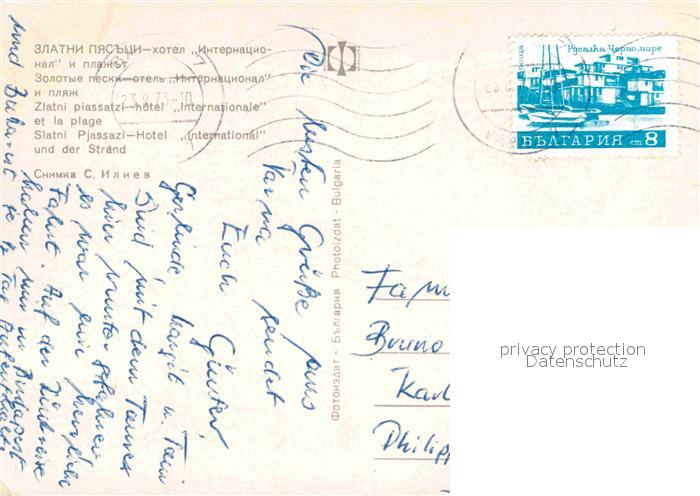 ЗЛАТНИ ПЯСЪЦИ—хотел „Интернацио-
нал" и плажът
Золотые пески—отель „Интернационал"
и пляж
Zlatni piassatzi—hôtel „Internationale"
et la plage
Slatni Pjassazi—Hotel „International"
und der Strand
Снимка С. Илиев
Русалка-Черноморе
БЪЛГАРИЯ ст 8
23.8.73-10
Фотоиздат - България Photoizdat - Bulgaria
Die besten Grüße aus
Varna sendet
Euch Günter,
Gerlinde Margit u. Toni
Sind mit dem Taunus
hier runter gefahren
es war eine herrliche
Fahrt. Auf der
haben wir in Budapest
und Bukarest je Tag
Bruno
Karl
Philipp
privacy protection
Datenschutz